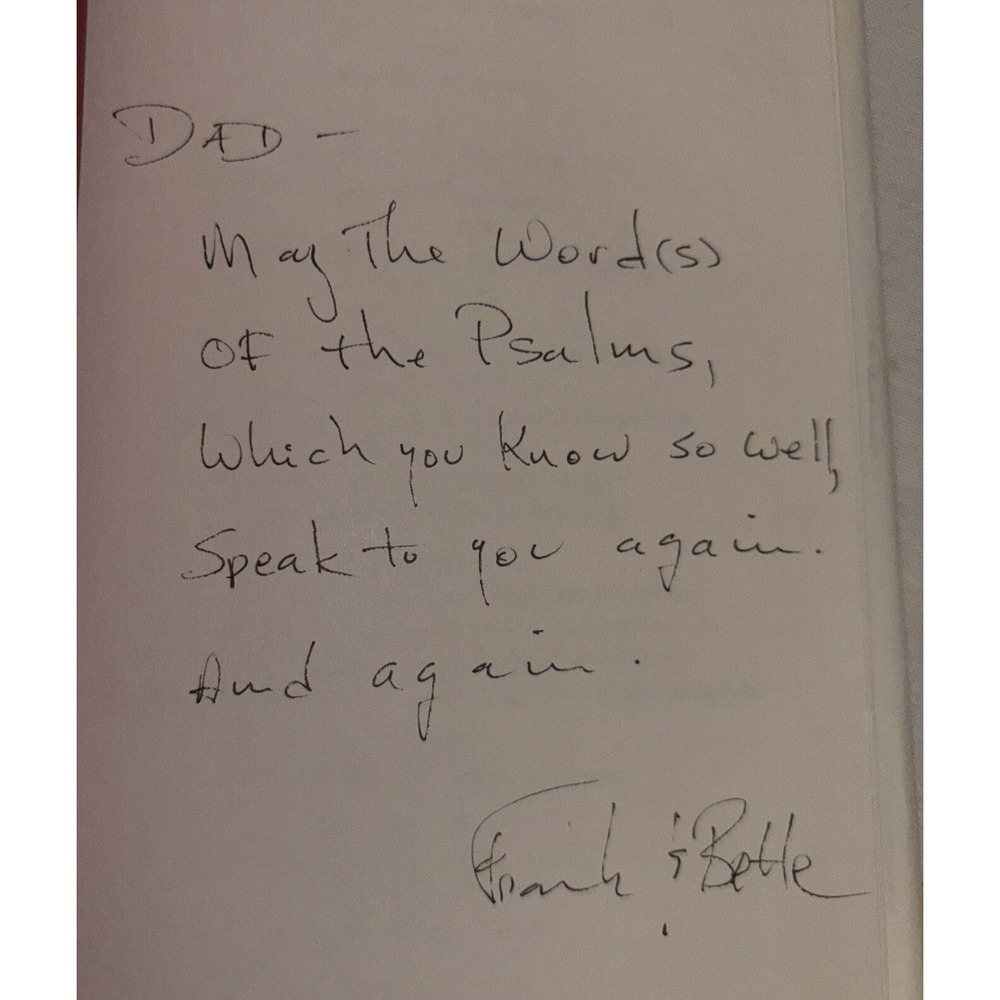 DAD -
May The Word(s)
OF the Psalms,
Which you Know so well,
Speak to you again.
And again.
Frank & Bette